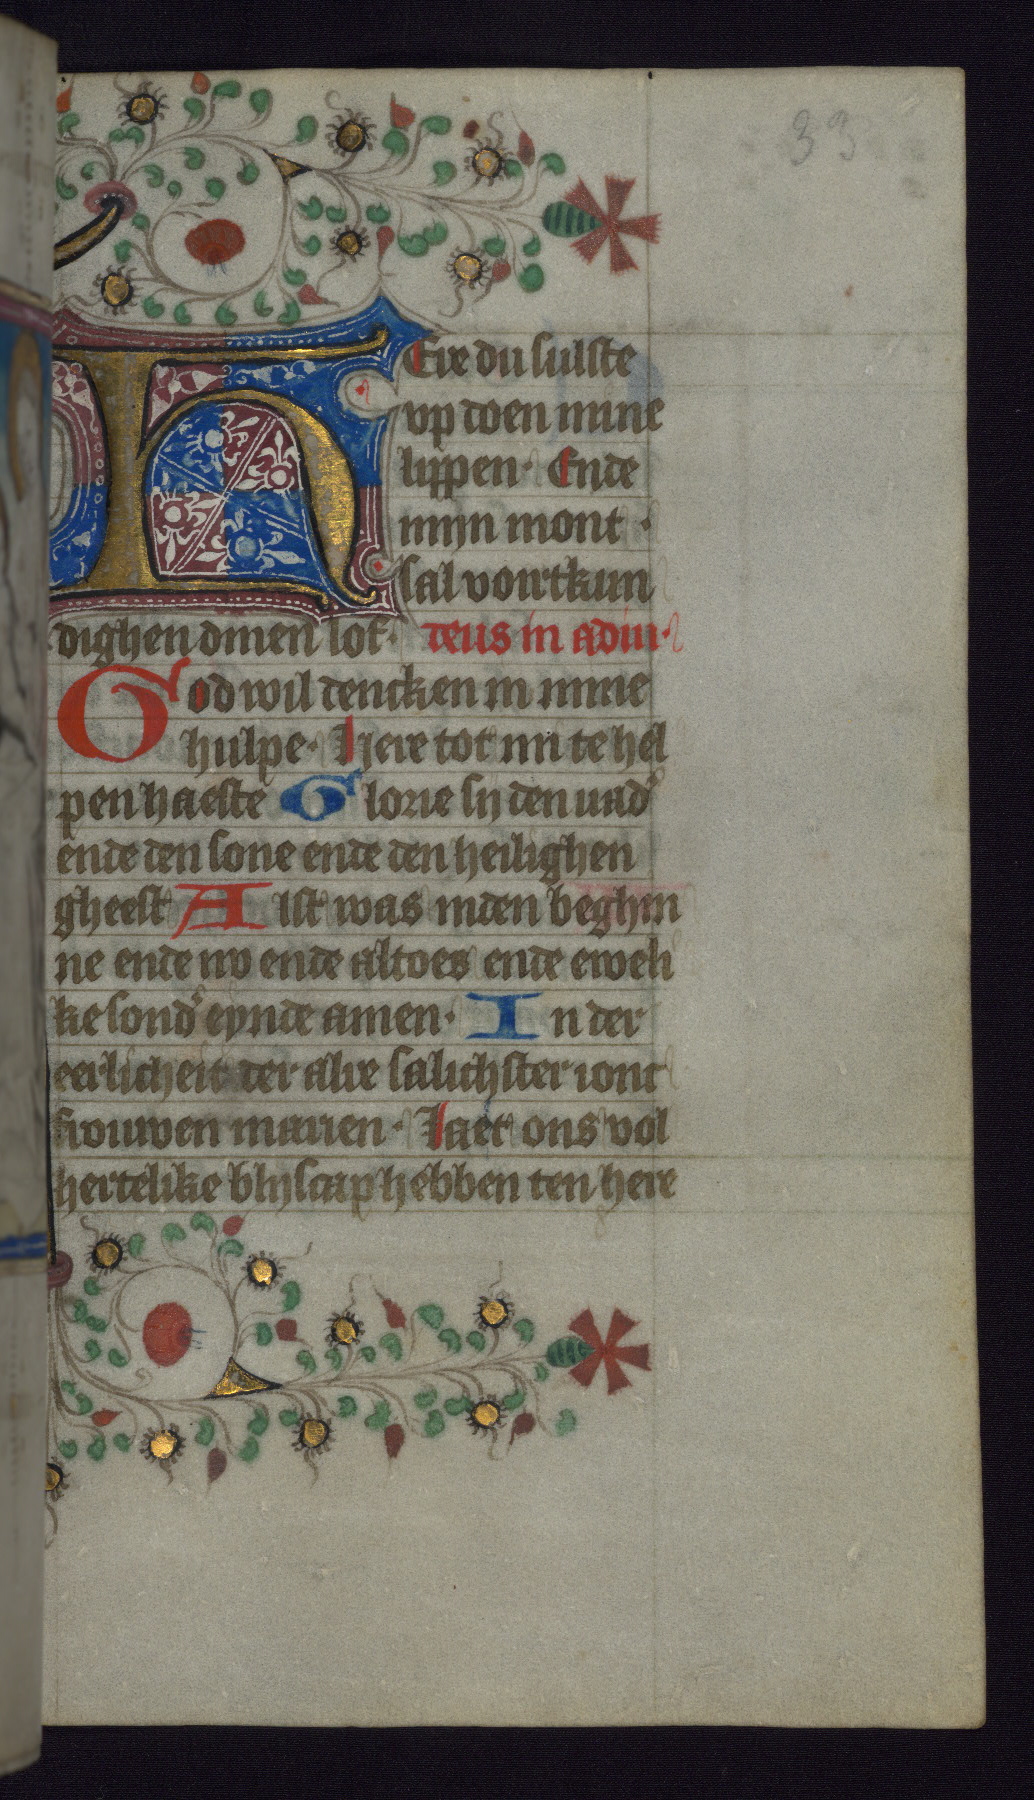 33
HEre du sulste
up doen mine
lippen· Ende
mijn mont·
sal voirtkun
dighen dinen lof· deus in adiu·
God wil dencken in mine
hulpe· Here tot mi te hel
pen haeste Glorie sij den vad'
ende den sone ende den heilighen
gheest Alst was inden beghin
ne ende nv ende altoes ende eweli
ke sond' eynde amen· In der
eerlicheit der alre salichster ionc
frouwen marien· Laet ons vol
hertelike blijscap hebben ten here